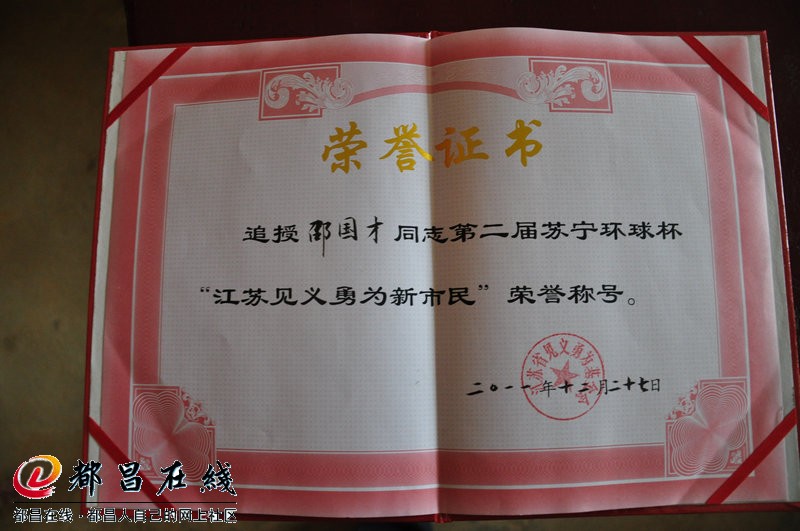 荣誉证书
追授邵国才同志第二届苏宁环球杯
“江苏见义勇为新市民”荣誉称号。
江苏省见义勇为基金会
二〇一一年十二月二十七日
都昌在线
都昌在线·都昌人自己的网上社区